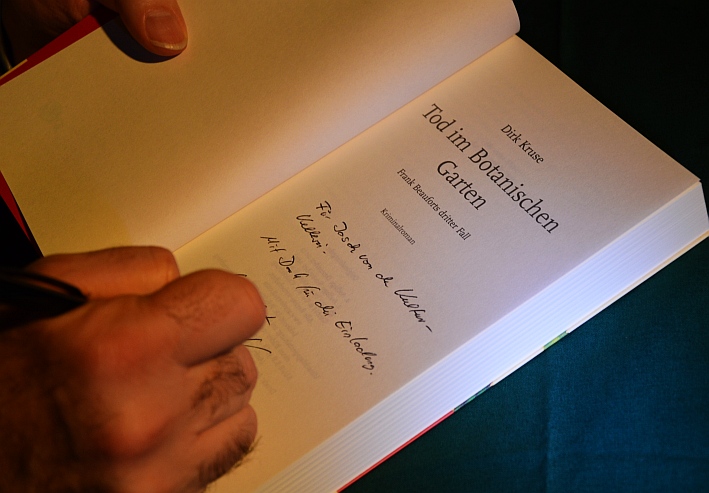 Dirk Kruse
Tod im Botanischen
Garten
Frank Beauforts dritter Fall
Kriminalroman
Für Josch von der Kultur-
Kellerei.
Mit Dank für die Einladung.